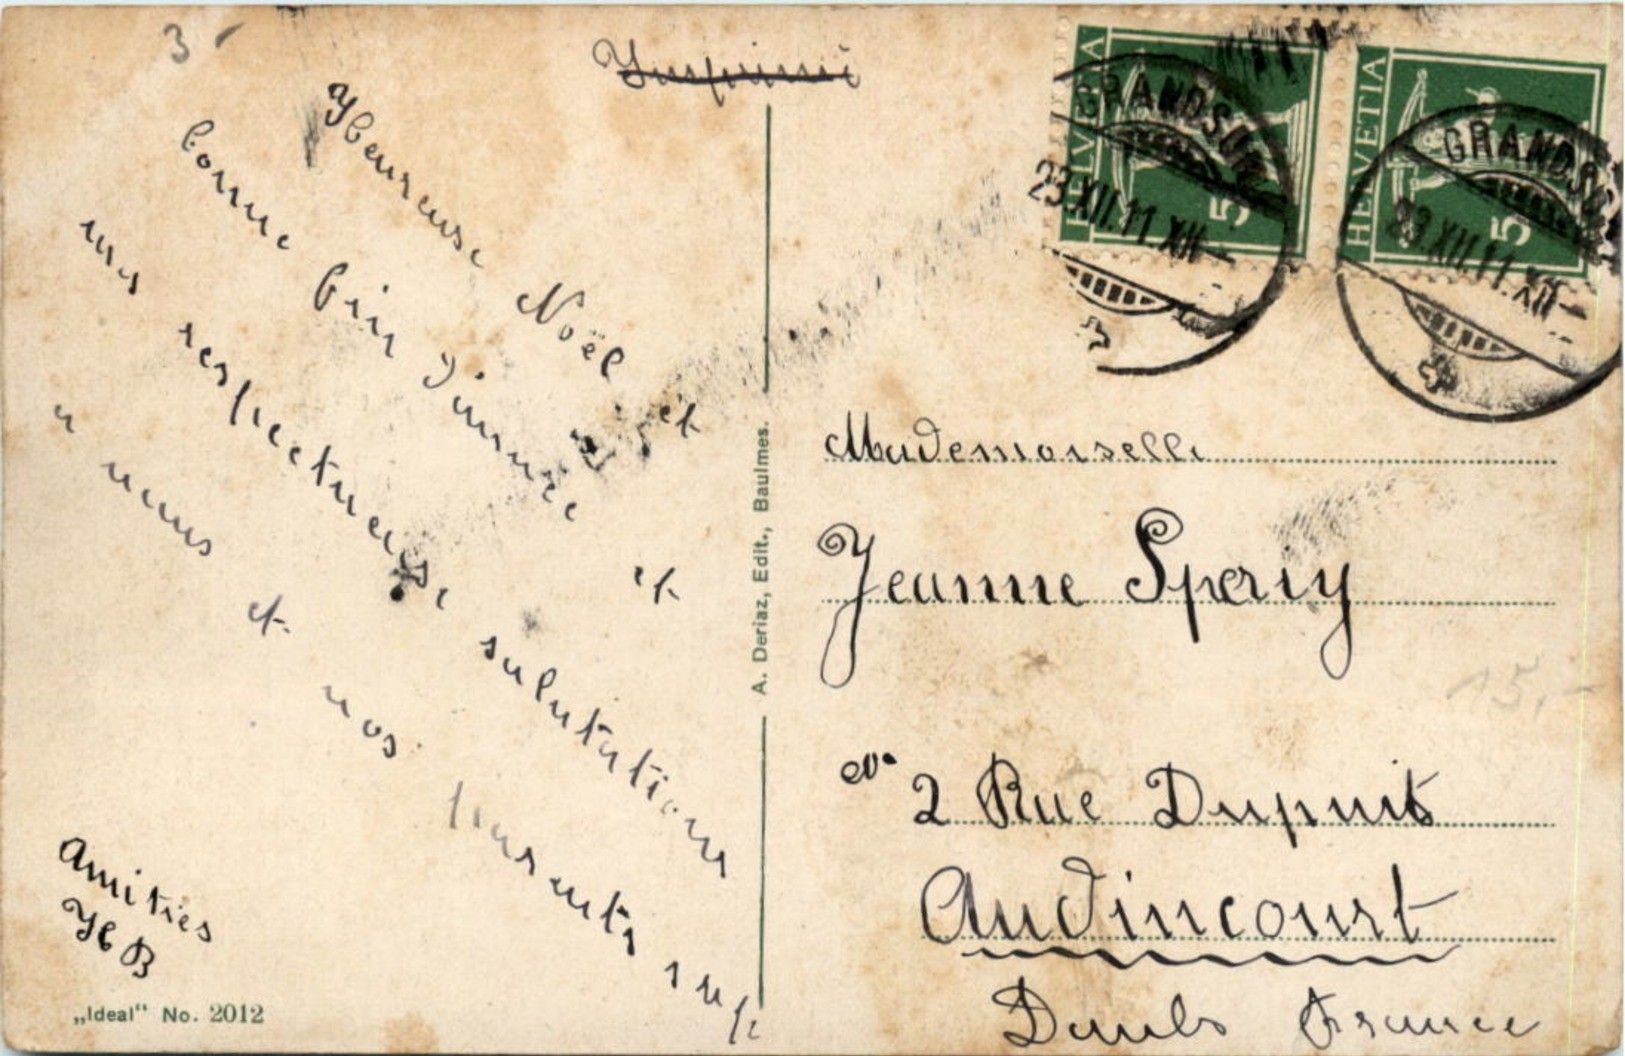 3
Imprimé
Heureuse Noël et
bonne fin d'année et
nos respectueuse salutations
a nous et nos parents
Amitiés
H B
„Ideal“ No. 2012
A. Deriaz, Edit., Baulmes.
HELVETIA 5
HELVETIA 5
GRANDSON
23.XII.11.XII–
GRANDSON
23.XII.11.XII–
Mademoiselle
Jeanne Sperry
No 2 Rue Dupuis
Audincourt
Doubs France
15,-